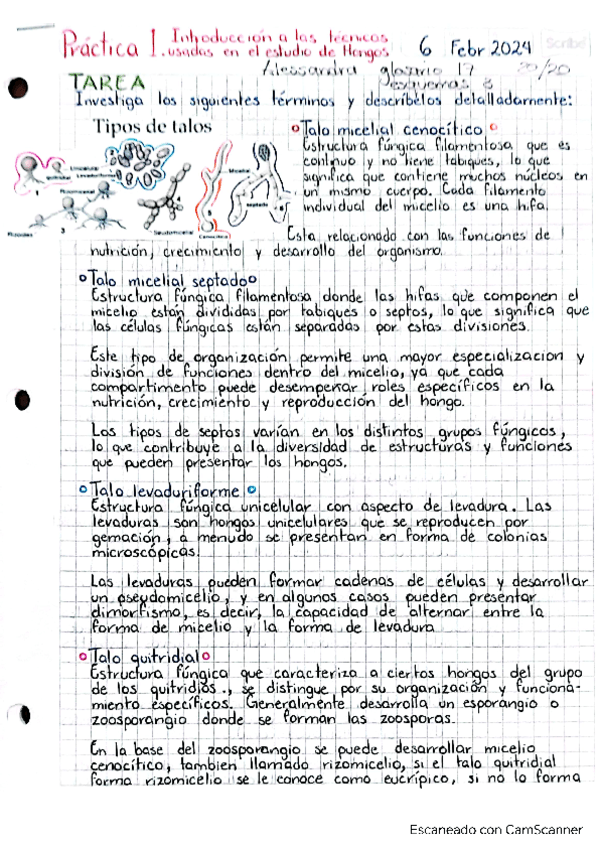 Práctica 1. Introducción a las técnicas
usadas en el estudio de Hongos
6 Febr 2024
Alessandra glosario 17 20/20
esquemas 3
TAREA
Investiga los siguientes términos y descríbelos detalladamente:
Tipos de talos
Talo micelial cenocítico
Estructura fúngica filamentosa que es
continuo y no tiene tabiques, lo que
significa que contiene muchos núcleos en
un mismo cuerpo. Cada filamento
individual del micelio es una hifa.
Esta relacionado con las funciones de
nutrición, crecimiento y desarrollo del organismo.
Talo micelial septado
Estructura fúngica filamentosa donde las hifas que componen el
micelio están divididas por tabiques o septos, lo que significa que
las células fúngicas están separadas por estas divisiones.
Este tipo de organización permite una mayor especializacion y
división de funciones dentro del micelio, ya que cada
compartimento puede desempeñar roles específicos en la
nutrición, crecimiento y reproducción del hongo.
Los tipos de septos varían en los distintos grupos fúngicos,
lo que contribuye a la diversidad de estructuras y funciones
que pueden presentar los hongos.
Talo levaduriforme
Estructura fúngica unicelular con aspecto de levadura. Las
levaduras son hongos unicelulares que se reproducen por
gemación, a menudo se presentan en forma de colonias
microscópicas.
Las levaduras pueden formar cadenas de células y desarrollar
un pseudomicelio, y en algunos casos pueden presentar
dimorfismo, es decir, la capacidad de alternar entre la
forma de micelio y la forma de levadura
Talo quitridial
Estructura fúngica que caracteriza a ciertos hongos del grupo
de los quitridios., se distingue por su organización y funciona-
miento específicos. Generalmente desarrolla un esporangio o
zoosporangio donde se forman las zoosporas.
En la base del zoosporangio se puede desarrollar micelio
cenocítico, tambien llamado rizomicelio, si el talo quitridial
forma rizomicelio se le conoce como eucrípico, si no lo forma
Escaneado con CamScanner